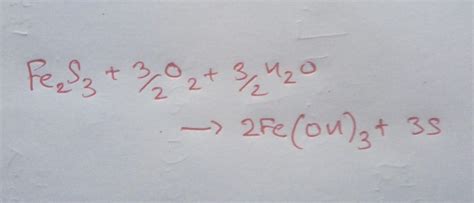 Fe₂S₃ + 3/2 O₂ + 3/2 H₂O
→ 2Fe(OH)₃ + 3S